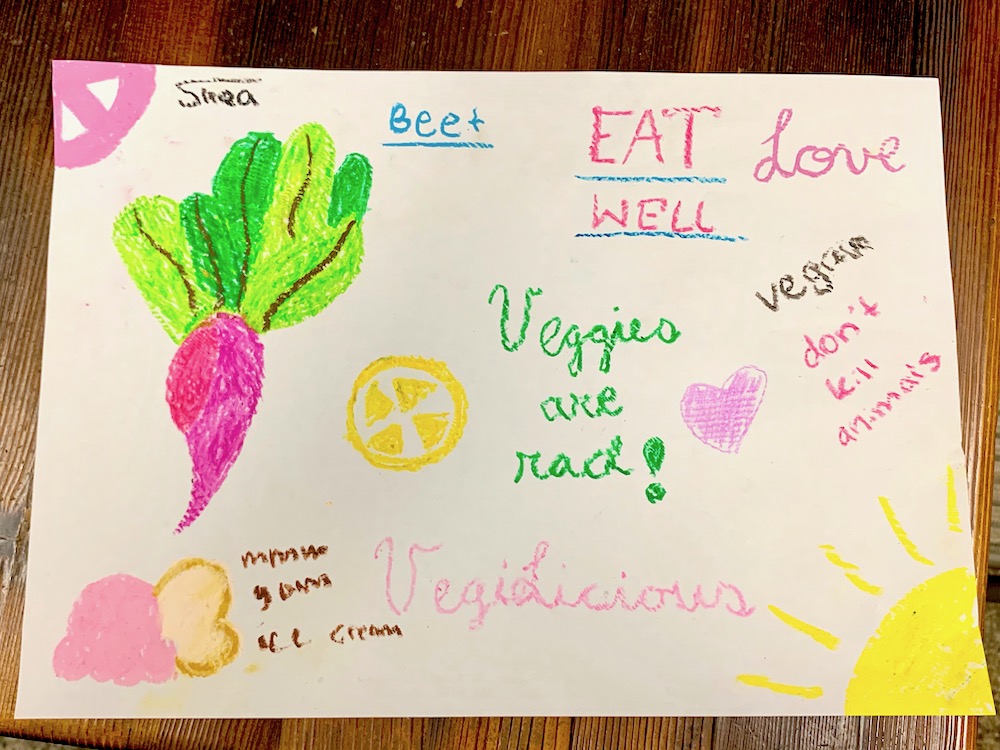 Shea
Beet
EAT
WELL
Love
vegan
don't
kill
animals
Veggies
are
rad!
Vegilicious
ice cream